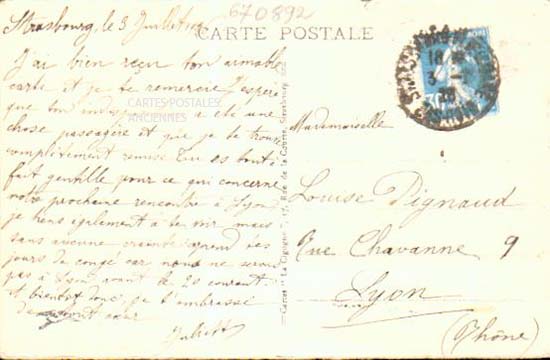 670892
Strasbourg, le 3 Juillet
CARTE POSTALE
J'ai bien reçu ton aimable
carte et je te remercie J'espère
que ton a été une
chose passagère et que je te trouve
complètement remise Tu es tout à
fait gentille pour ce qui concerne
notre prochaine rencontre à Lyon
je tiens également à te voir mais
sans aucune crainte prend tes
jours de congé car nous ne serons
pas à Lyon avant le 20 courant.
Et bientôt donc, je t'embrasse
de tout cœur
Juliette
CARTES POSTALES
ANCIENNES
Cartes "La Cigogne", 15, Rue de la Course, Strasbourg
Mademoiselle
Louise Pignaud
Rue Chavanne 9
Lyon
(Rhône)
18
3 -
30